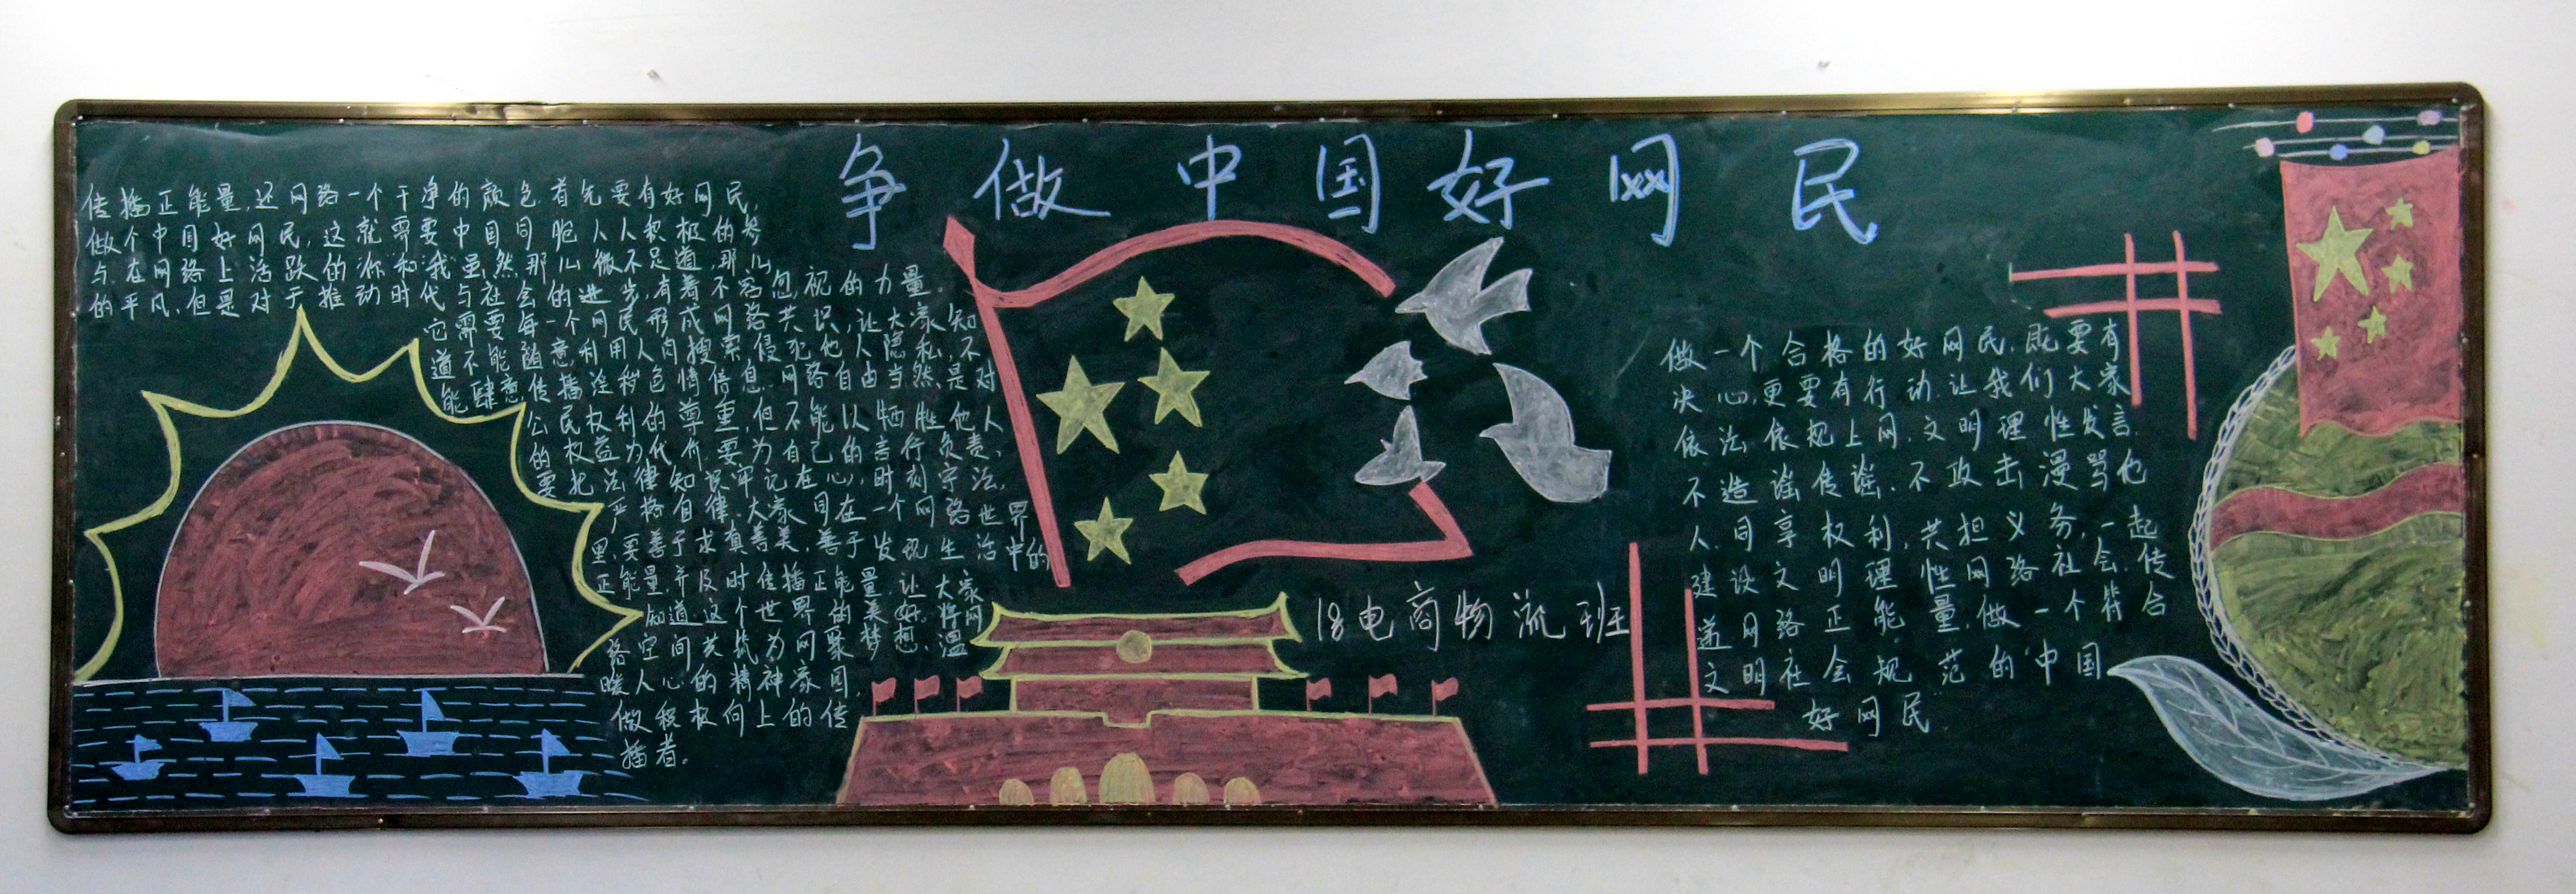 争做中国好网民
传播正能量,还网络一个干净的颜色.首先要有好网民,
做个中国好网民,这就需要中国同胞人人积极的参
与.在网络上活跃的你和我虽然那儿微不足道,那儿
的平凡,但是对于推动时代与社会的进步,有着不容忽视的力量。
它需要每一个网民形成网络共识,让大家知
道不能随意利用人肉搜索侵犯他人隐私,不
能肆意传播淫秽色情信息.网络自由当然是对
公民权利的尊重,但不能以牺牲他人
的权益为代价.要为自己的言行负责,
要把法律知识牢记在心,时刻守法,
严格自律.大家同在一个网络世界
里,要善于求真善美,善于发现生活中的
正能量.并及时传播正能量,让大家
知道这个世界的美好。将网
络空间共筑为网聚梦想、温
暖人心的精神家园,
做积极向上的传
播者。
18电商物流班
做一个合格的好网民.既要有
决心,更要有行动.让我们大家
依法依规上网.文明理性发言
不造谣传谣.不攻击漫骂他
人.同享权利,共担义务,一起
建设文明理性网络社会.传
递网络正能量.做一个符合
文明社会规范的中国
好网民